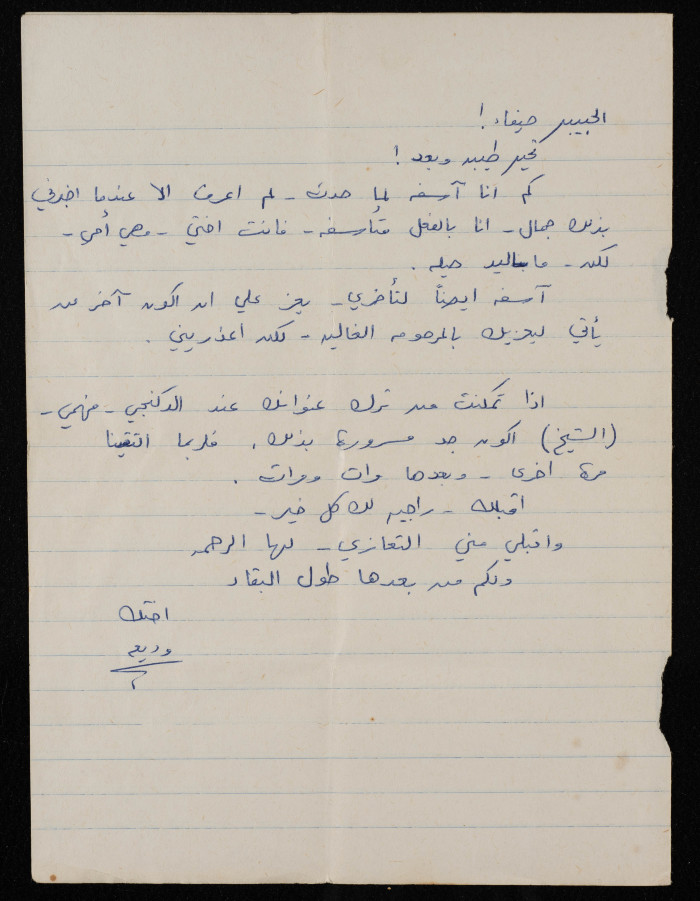 الحبيبه هيفاء!
تحيه طيبه وبعد!
كم انا آسفه لما حدث - لم اعرف الا عندما اخبرني
بذلك جمال - انا بالفعل متأسفه - فانت اختي - وهي أمي -
لكن - ما باليد حيله .
آسفه ايضاً لتأخري - يعز علي ان اكون آخر من
يأتي ليعزيك بالمرحومه الغاليه - لكن اعذريني .
اذا تمكنت من ترك عنوانك عند الدكنجي - فهمي -
(الشيخ) اكون جد مسرورة بذلك . فلربما التقينا
مرة اخرى - وبعدها مرات ومرات .
اقبلك - راجيه لك كل خير -
واقبلي مني التعازي - لها الرحمه
ولكم من بعدها طول البقاء
اختك
وديعه